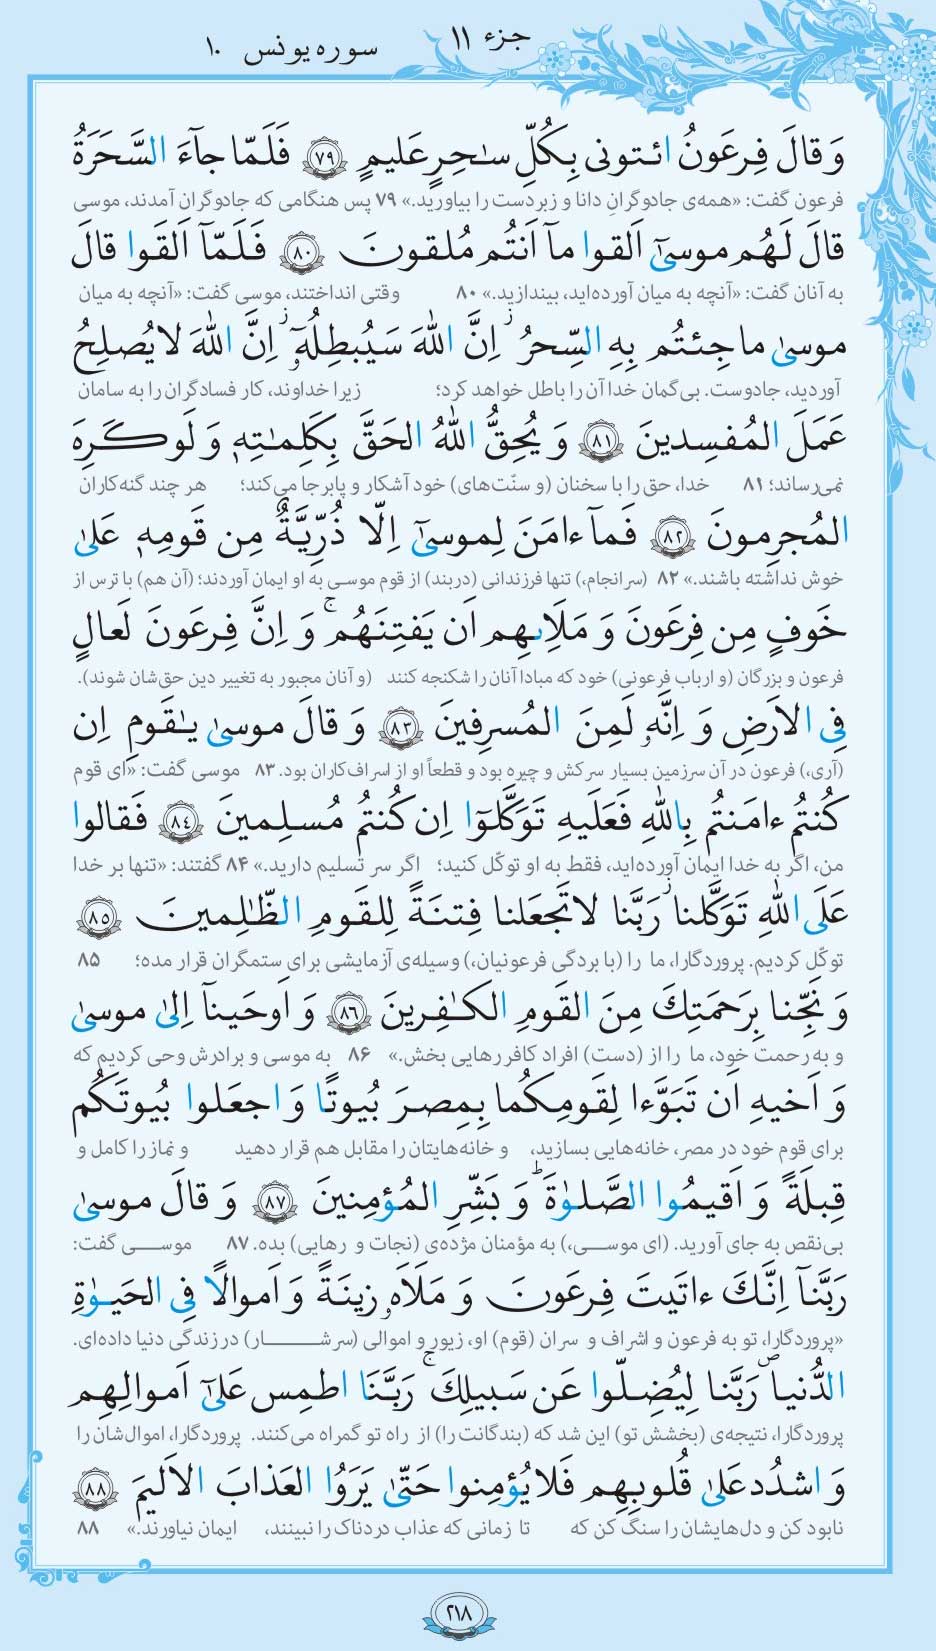 جزء ۱۱
سوره یونس ۱۰
وَ قالَ فِرعَونُ ائتونی بِکُلِّ سـٰحِرٍ عَلیمٍ ﴿۷۹﴾ فَلَمّا جآءَ السَّحَرَةُ
فرعون گفت: «همه‌ی جادوگرانِ دانا و زبردست را بیاورید.» ۷۹ پس هنگامی که جادوگران آمدند، موسی
قالَ لَهُم موسیٰٓ اَلقوا مآ اَنتُم مُلقونَ ﴿۸۰﴾ فَلَمّآ اَلقَوا قالَ
به آنان گفت: «آنچه به میان آورده‌اید، بیندازید.» ۸۰ وقتی انداختند، موسی گفت: «آنچه به میان
موسیٰ ما جِئتُم بِهِ السِّحرُ ۖ اِنَّ اللّٰهَ سَیُبطِلُهٗٓ ۖ اِنَّ اللّٰهَ لا یُصلِحُ
آوردید، جادوست. بی‌گمان خدا آن را باطل خواهد کرد؛ زیرا خداوند، کار فسادگران را به سامان
عَمَلَ المُفسِدینَ ﴿۸۱﴾ وَ یُحِقُّ اللّٰهُ الحَقَّ بِکَلِمـٰتِهٖ وَ لَو کَرِهَ
نمی‌رساند؛ ۸۱ خدا، حق را با سخنان (و سنّت‌های) خود آشکار و پابرجا می‌کند؛ هر چند گنه‌کاران
المُجرِمونَ ﴿۸۲﴾ فَمآ ءامَنَ لِموسیٰٓ اِلّا ذُرِّیَّةٌ مِن قَومِهٖ عَلیٰ
خوش نداشته باشند.» ۸۲ (سرانجام،) تنها فرزندانی (دربند) از قوم موسی به او ایمان آوردند؛ (آن هم) با ترس از
خَوفٍ مِن فِرعَونَ وَ مَلَاِیهِم اَن یَفتِنَهُم ۚ وَ اِنَّ فِرعَونَ لَعالٍ
فرعون و بزرگان (و ارباب فرعونی) خود که مبادا آنان را شکنجه کنند (و آنان مجبور به تغییر دین حق‌شان شوند).
فِی الاَرضِ وَ اِنَّهٗ لَمِنَ المُسرِفینَ ﴿۸۳﴾ وَ قالَ موسیٰ یـٰقَومِ اِن
(آری،) فرعون در آن سرزمین بسیار سرکش و چیره بود و قطعاً او از اسراف‌کاران بود. ۸۳ موسی گفت: «ای قوم
کُنتُم ءامَنتُم بِاللّٰهِ فَعَلَیهِ تَوَکَّلوٓا اِن کُنتُم مُسلِمینَ ﴿۸۴﴾ فَقالوا
من، اگر به خدا ایمان آورده‌اید، فقط به او توکّل کنید؛ اگر سر تسلیم دارید.» ۸۴ گفتند: «تنها بر خدا
عَلَی اللّٰهِ تَوَکَّلنا ۖ رَبَّنا لا تَجعَلنا فِتنَةً لِلقَومِ الظّـٰلِمینَ ﴿۸۵﴾
توکّل کردیم. پروردگارا، ما را (با بردگی فرعونیان،) وسیله‌ی آزمایشی برای ستمگران قرار مده؛ ۸۵
وَ نَجِّنا بِرَحمَتِکَ مِنَ القَومِ الکـٰفِرینَ ﴿۸۶﴾ وَ اَوحَینآ اِلیٰ موسیٰ
و به رحمت خود، ما را از (دست) افراد کافر رهایی بخش.» ۸۶ به موسی و برادرش وحی کردیم که
وَ اَخیهِ اَن تَبَوَّءا لِقَومِکُما بِمِصرَ بُیوتًا وَ اجعَلوا بُیوتَکُم
برای قوم خود در مصر، خانه‌هایی بسازید، و خانه‌هایتان را مقابل هم قرار دهید و نماز را کامل و
قِبلَةً وَ اَقیمُوا الصَّلوٰةَ ۗ وَ بَشِّرِ المُؤمِنینَ ﴿۸۷﴾ وَ قالَ موسیٰ
بی‌نقص به جای آورید. (ای موسی،) به مؤمنان مژده‌ی (نجات و رهایی) بده. ۸۷ موسی گفت:
رَبَّنآ اِنَّکَ ءاتَیتَ فِرعَونَ وَ مَلَاَهٗ زینَةً وَ اَموالًا فِی الحَیوٰةِ
«پروردگارا، تو به فرعون و اشراف و سران (قوم) او، زیور و اموالی (سرشار) در زندگی دنیا داده‌ای.
الدُّنیا ۖ رَبَّنا لِیُضِلّوا عَن سَبیلِکَ ۚ رَبَّنَا اطمِس عَلیٰٓ اَموالِهِم
پروردگارا، نتیجه‌ی (بخشش تو) این شد که (بندگانت را) از راه تو گمراه می‌کنند. پروردگارا، اموال‌شان را
وَ اشدُد عَلیٰ قُلوبِهِم فَلا یُؤمِنوا حَتّیٰ یَرَوُا العَذابَ الاَلیمَ ﴿۸۸﴾
نابود کن و دل‌هایشان را سنگ کن که تا زمانی که عذاب دردناک را نبینند، ایمان نیاورند.» ۸۸
۲۱۸